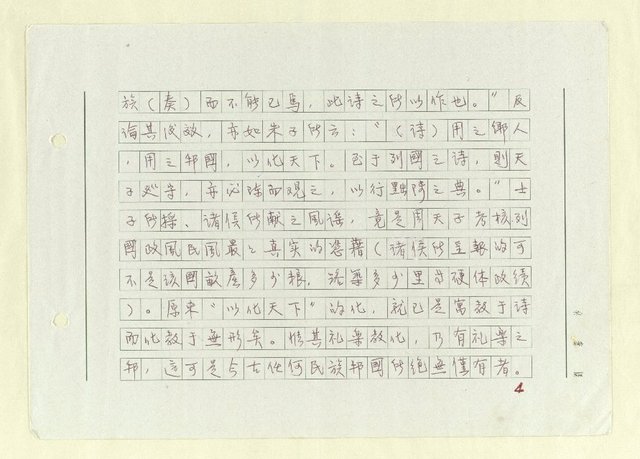 族（奏）而不能已焉，此詩之所以作也。"及
論其成效，亦如朱子所云："（诗）用之鄉人
，用之邦國，以化天下。至于列國之诗，則天
子巡守，亦必陈而观之，以行黜陟之典。"士
子所採、诸侯所献之風谣，竟是周天子考核列
國政風民風最之真实的憑藉（诸侯所呈報的可
不是该國畝產多少粮，活築多少里当硬体政绩
）。原来"以化天下"的化，就已是寓教于诗
而化教于無形矣。惟其礼樂教化，乃有礼樂之
邦，这可是今古任何民族邦國所绝無僅有者。
4